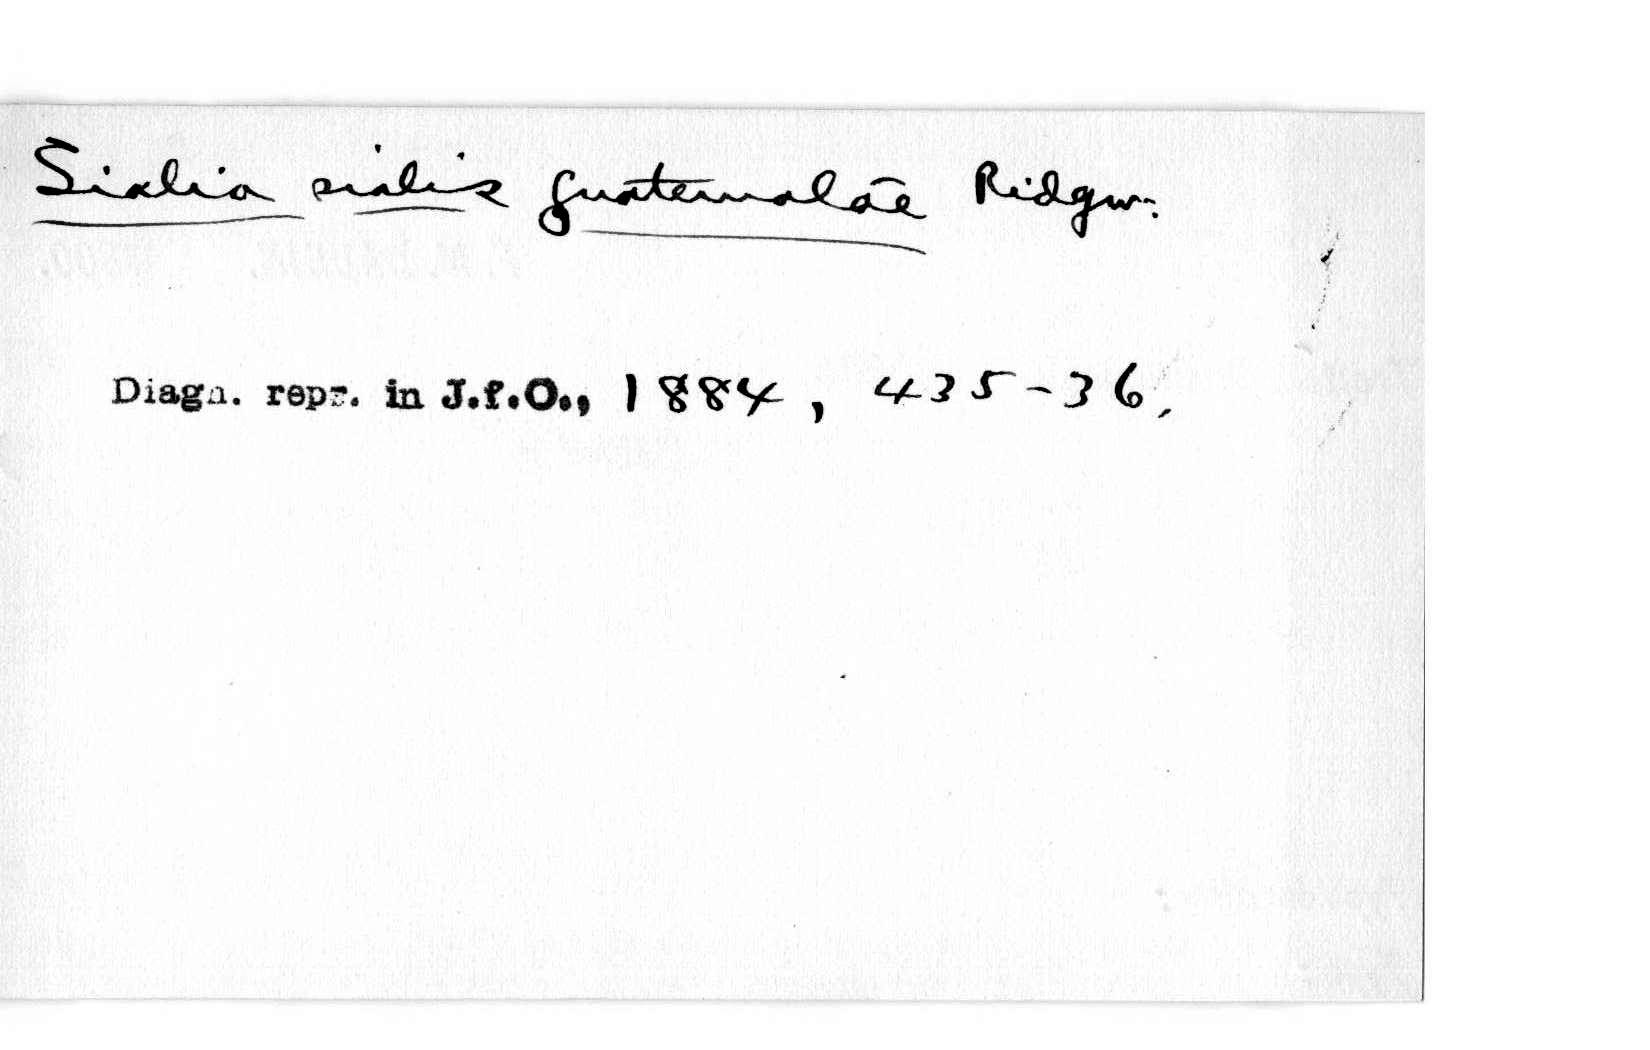 Sialia sialis guatemalae Ridgw.
Diagn. repr. in J.f.O., 1884, 435-36,